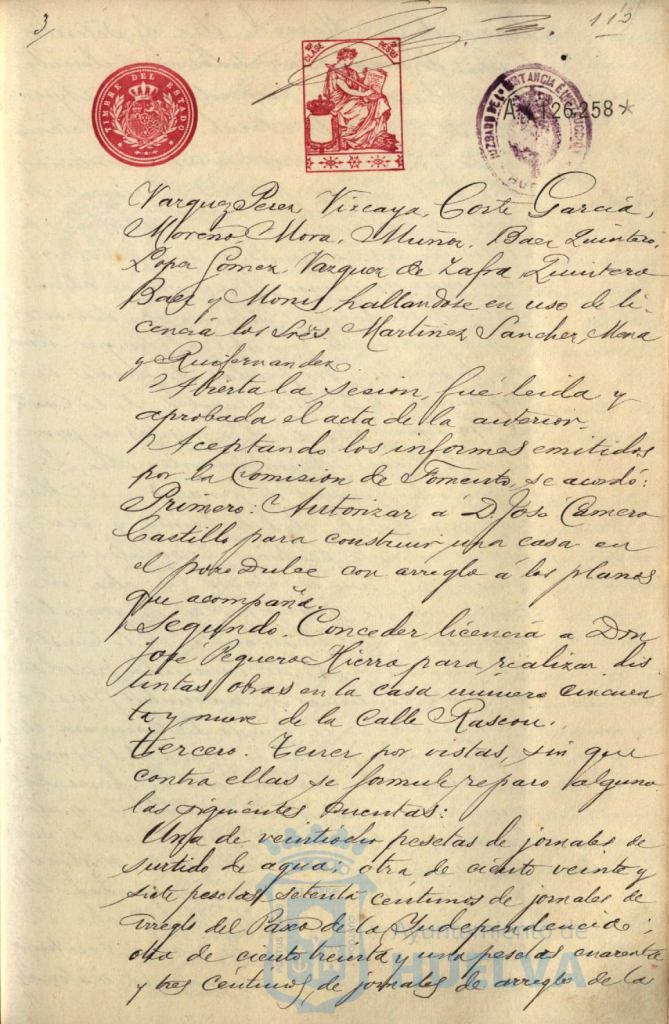 3
113
TIMBRE DEL ESTADO
CLASE
PESETAS
JUZGADO DE 1ª INSTANCIA E INSTRUCCION
HUELVA
A 126.258*
Vazquez Perez, Vizcaya, Corte Garcia,
Moreno, Mora, Muñoz, Baez Quintero,
Lopez Gomez, Vazquez de Zafra, Quintero
Baez y Monis, hallandose en uso de li-
cencia los Sres. Martinez Sanchez, Mora
y Ruifernandez.
Abierta la sesion, fué leida y
aprobada el acta de la anterior.
Aceptando los informes emitidos
por la Comision de Fomento, se acordó:
Primero: Autorizar á D. José Camero
Castillo para construir una casa en
el pozo Dulce con arreglo á los planos
que acompaña.
Segundo. Conceder licencia a Don
José Peguero Hierro para realizar dis
tintas obras en la casa número cincuen
ta y nueve de la Calle Rascon.
Tercero. Tener por vistas, sin que
contra ellas se formule reparo alguno
las siguientes cuentas:
Una de veintiocho pesetas de jornales de
surtido de agua; otra de ciento veinte y
siete pesetas setenta céntimos de jornales de
arreglo del Paseo de la Yndependencia;
otra de ciento treinta y una pesetas cuarenta
y tres céntimos de jornales de arreglo de la
Ayuntamiento de
HUELVA